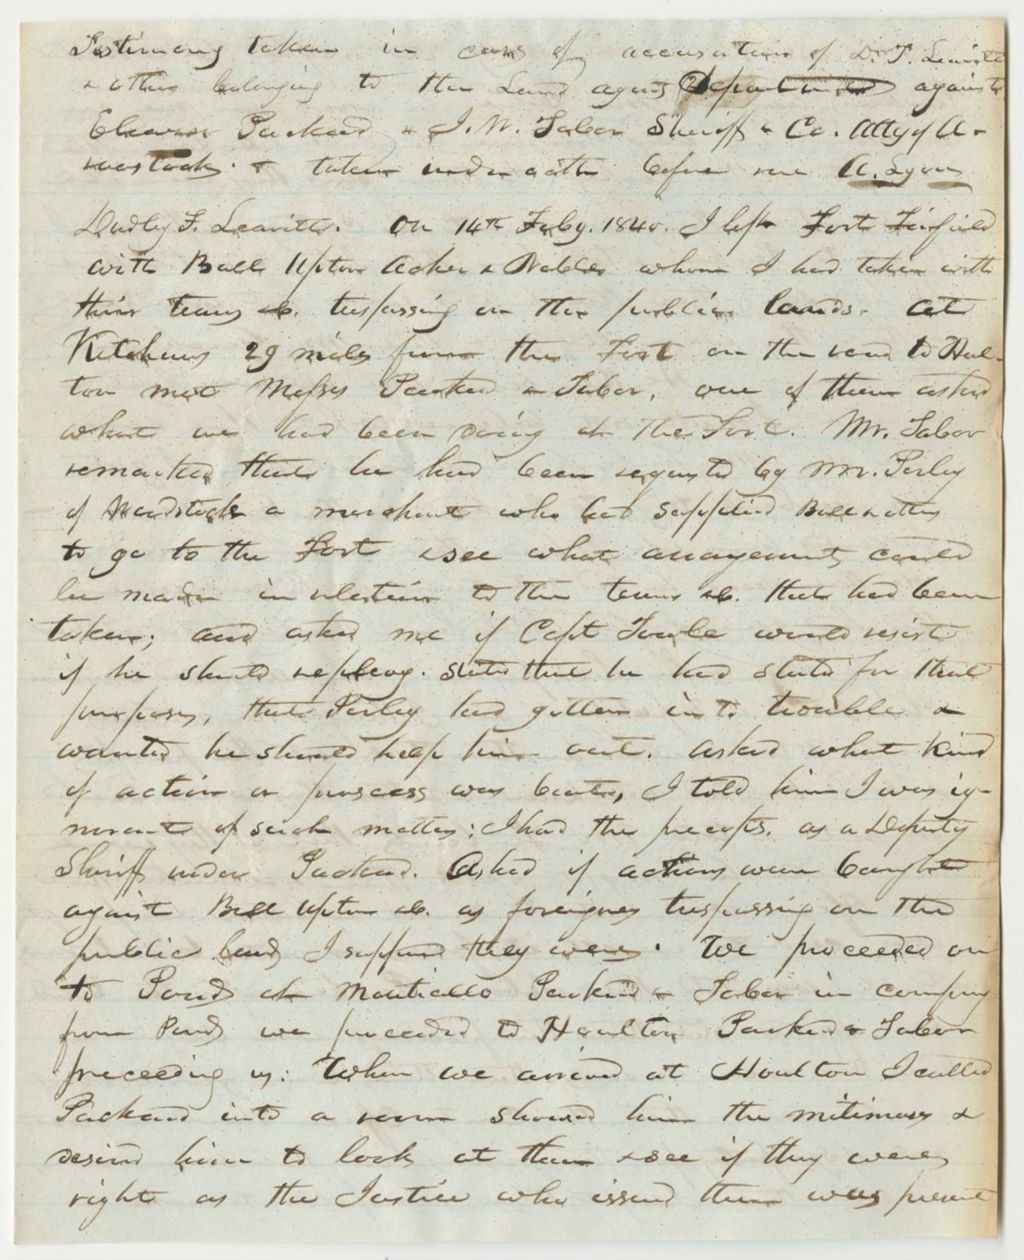 Testimony taken in case of accusation of D. F. Leavitt
& others belonging to the Land agents Department against
Eleazer Packard & J. W. Tabor Sheriff & Co. Atty of A-
roostook. & taken under oath before me A. Lyon
Dudley F. Leavitt. On 14th Feby. 1840. I left Fort Fairfield
with Ball Upton Acker & Nobles whom I had taken with
their teams &c. trespassing on the public lands. At
Ketchums 29 miles from the Fort on the road to Houl-
ton met Messrs Packard & Tabor, one of them asked
what we had been doing at the Fort. Mr. Tabor
remarked that he had been requested by Mr. Perley
of Woodstock a merchant who had supplied Ball & others
to go to the Fort & see what arrangements could
be made in relation to the teams &c. that had been
taken; and asked me if Capt Towle would resist
if he should replevy. Stated that he had started for that
purpose, that Perley had gotten into trouble &
wanted he should help him out. Asked what kind
of action or process was bro't, I told him I was ig-
norant of such matters; I had the precepts, as a Deputy
Sheriff under Packard. Asked if actions were brought
against Ball Upton &c. as foreigners trespassing on the
public lands I suppose they were. We proceeded on
to Ponds at Monticello Packard & Tabor in company
from Ponds we proceeded to Houlton, Packard & Tabor
preceeding us: When we arrived at Houlton I called
Packard into a room showed him the mitimuses &
desired him to look at them & see if they were
right as the Justice who issued them was present